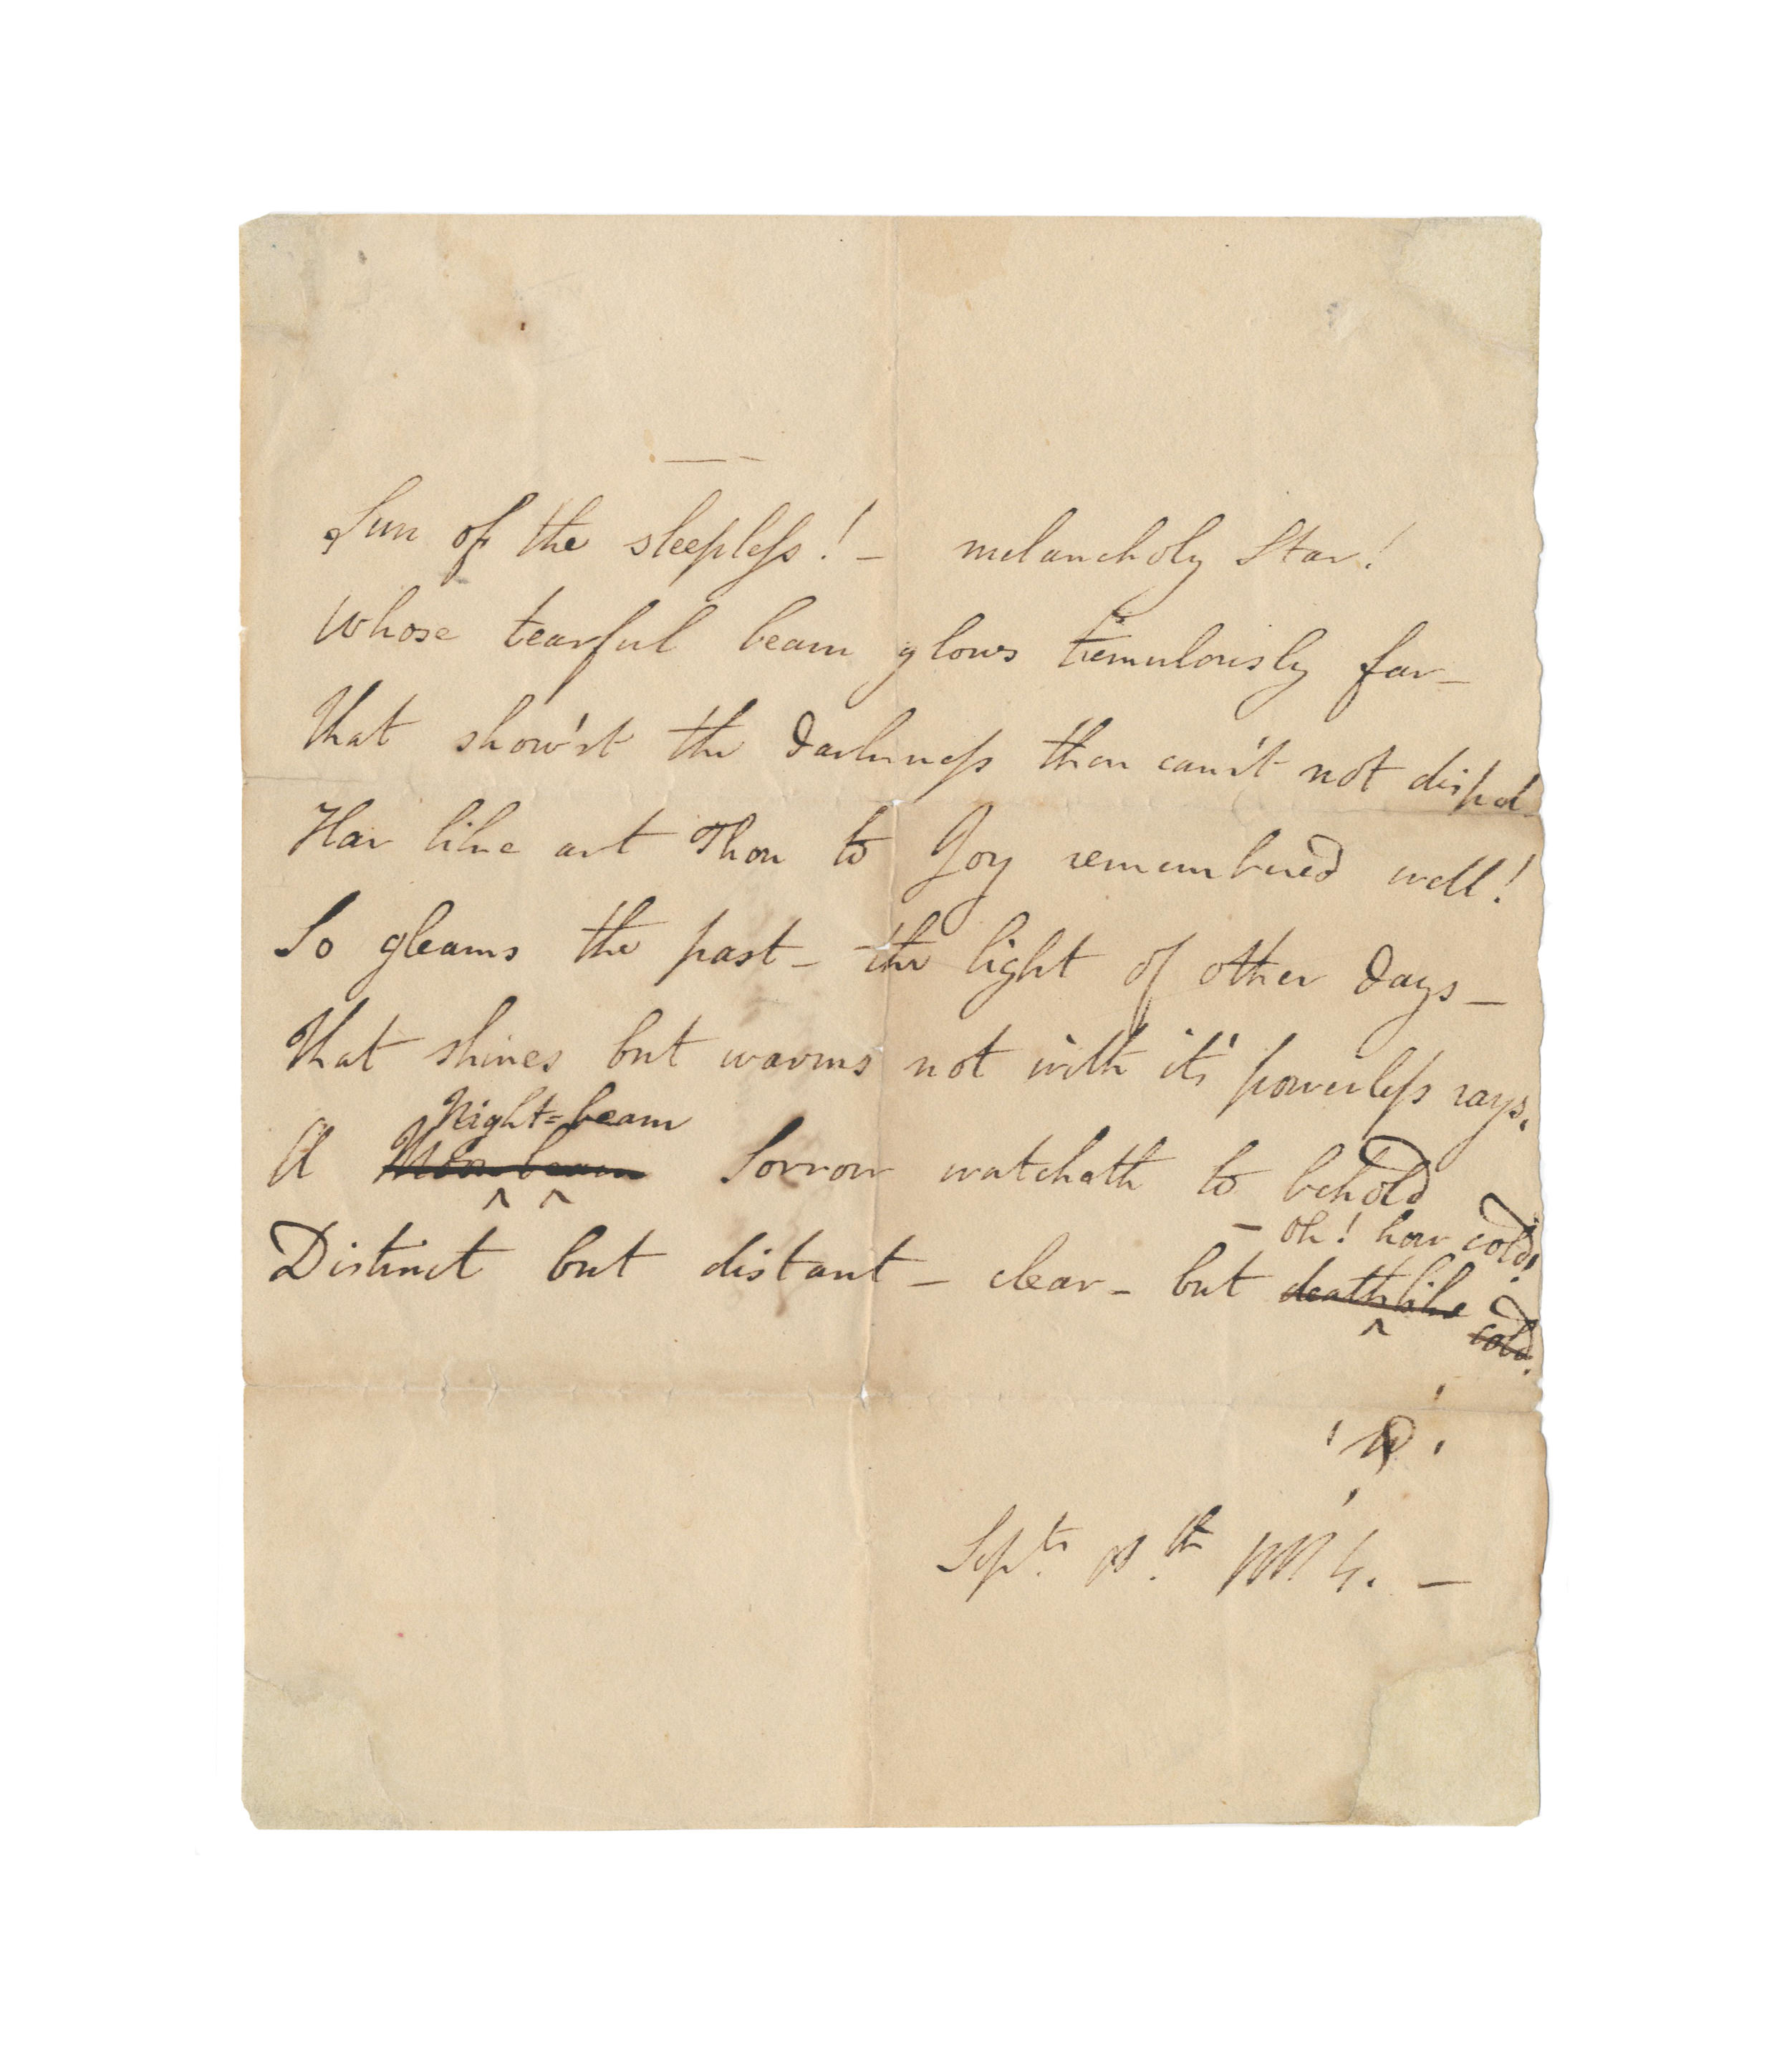 Sun of the sleepless! — melancholy Star!
Whose tearful beam glows tremulously far —
That show'st the darkness thou can'st not dispel
How like art Thou to Joy remembered well!
So gleams the past — the light of other days —
That shines but warms not with it's powerless rays.
Night=beam
A Moon beam Sorrow watcheth to behold
— oh! how cold!
Distinct but distant — clear — but deathlike cold.
Sept. 8.th 1814. —